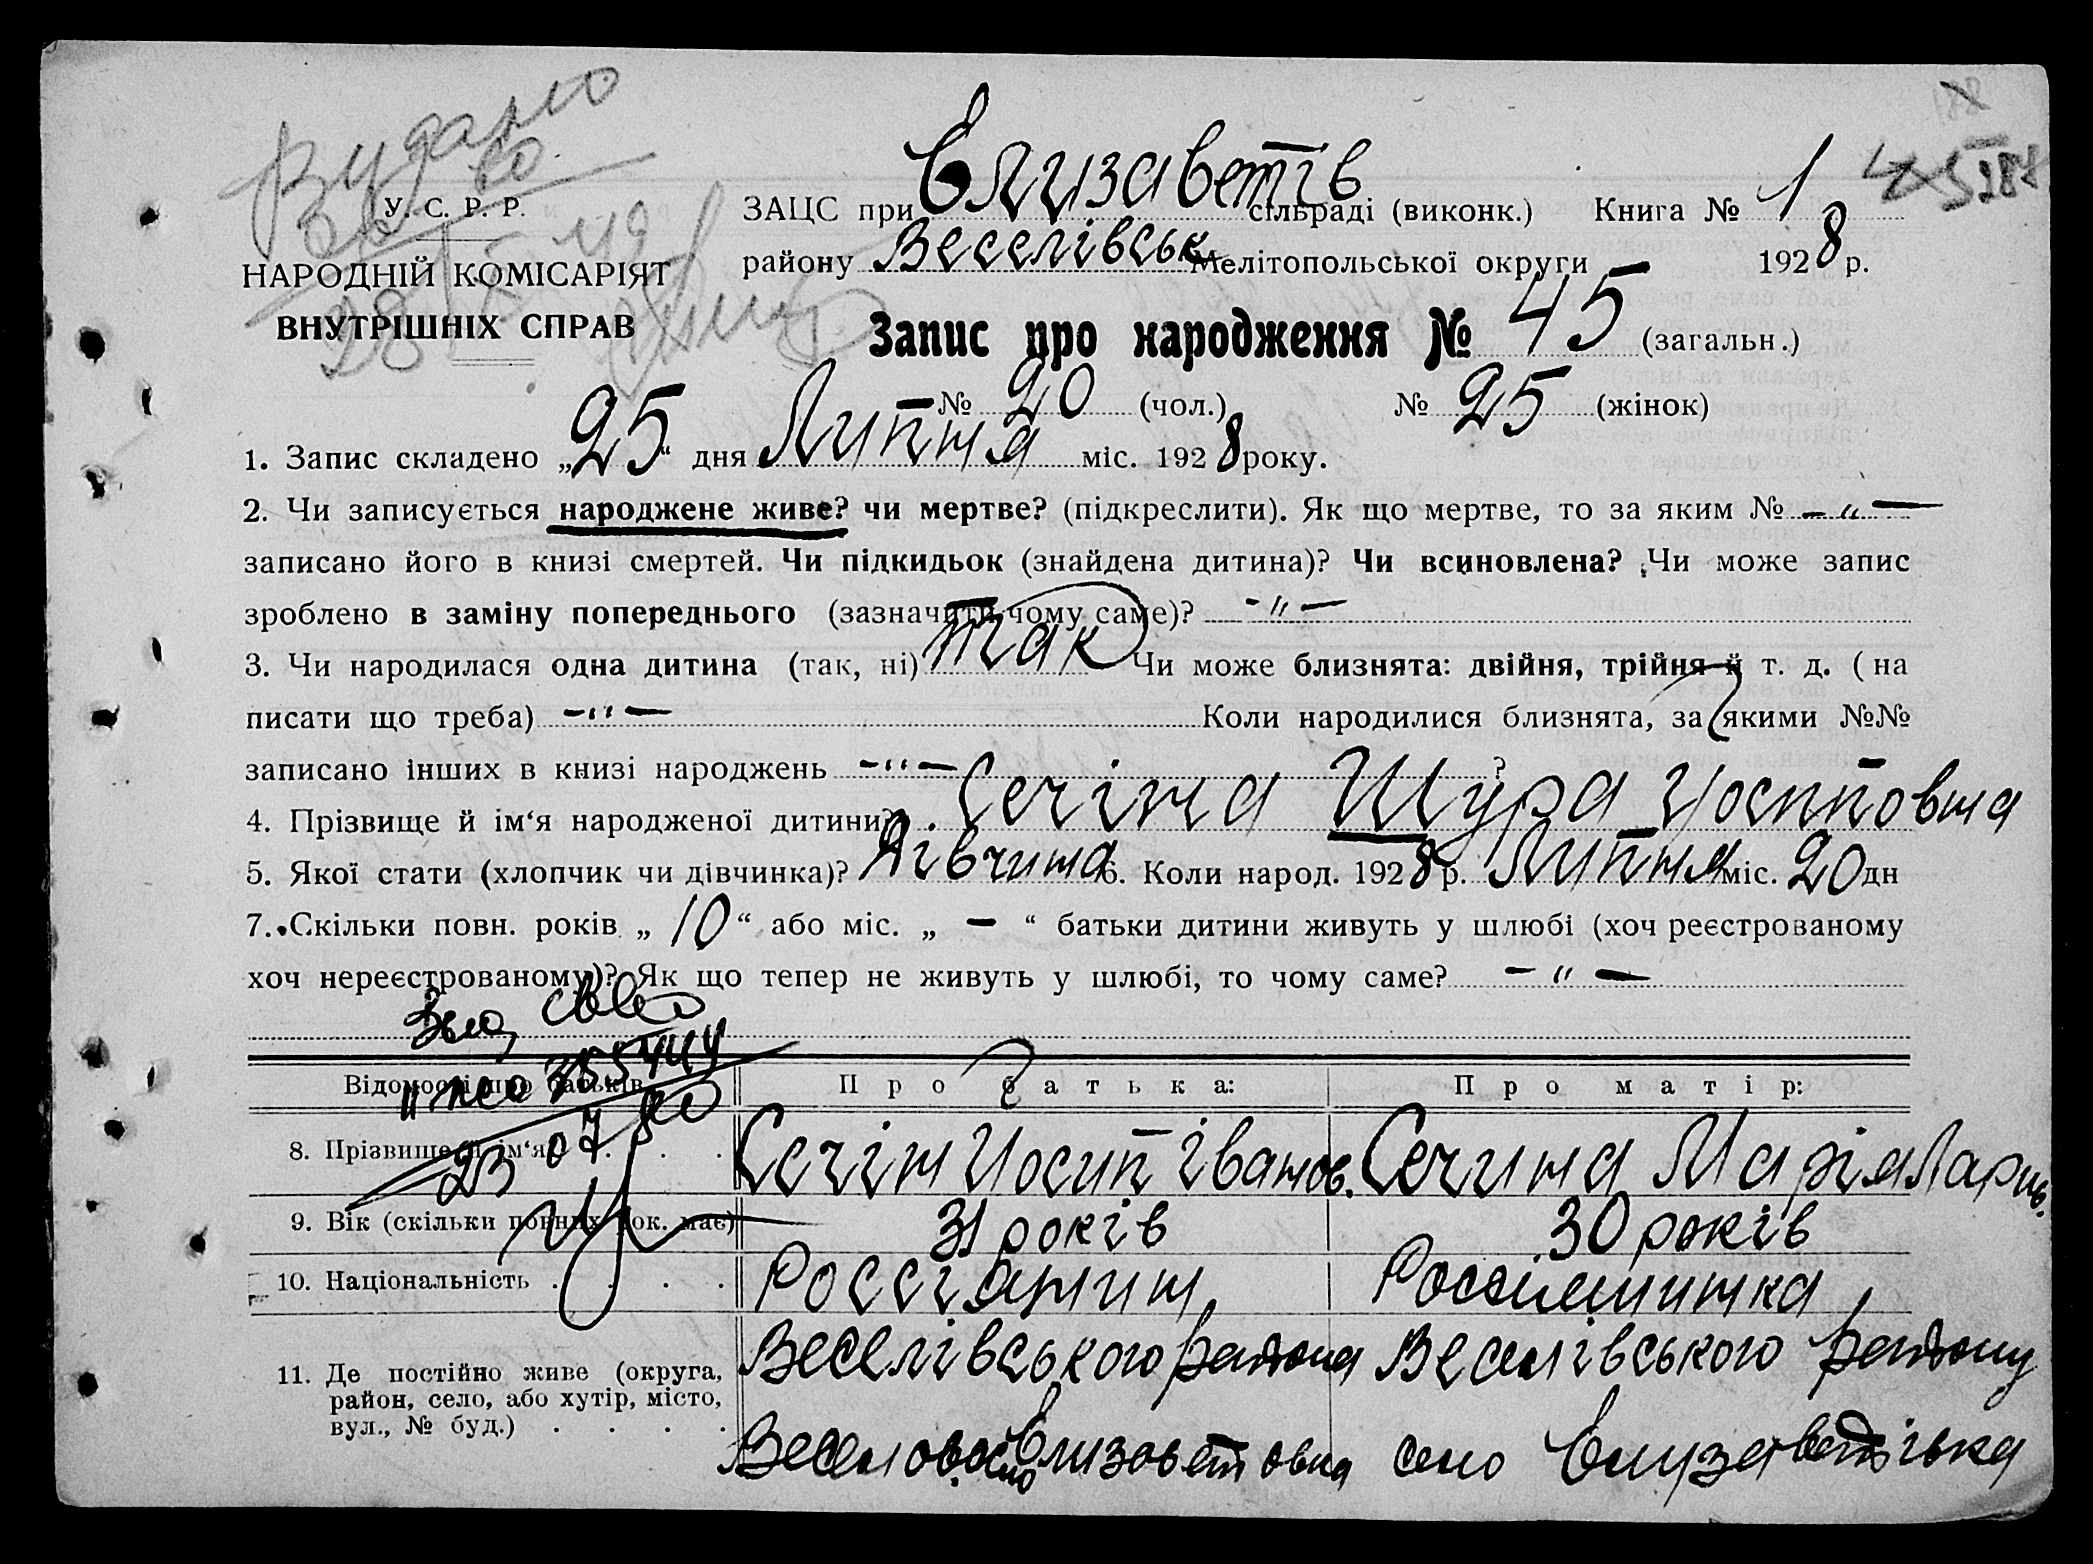 Видано
У. С. Р. Р.
НАРОДНІЙ КОМІСАРІЯТ
ВНУТРІШНІХ СПРАВ
ЗАЦС при Єлизаветів сільраді (виконк.) Книга № 1
району Веселівськ Мелітопольської округи 1928 р.
Запис про народження № 45 (загальн.)
№ 20 (чол.) № 25 (жінок)
1. Запис складено „25“ дня Липня міс. 1928 року.
2. Чи записується народжене живе? чи мертве? (підкреслити). Як що мертве, то за яким № - „ -
записано його в книзі смертей. Чи підкидьок (знайдена дитина)? Чи всиновлена? Чи може запис
зроблено в заміну попереднього (зазначити чому саме)? - „ -
3. Чи народилася одна дитина (так, ні) так Чи може близнята: двійня, трійня й т. д. (на
писати що треба) - „ - Коли народилися близнята, за якими №№
записано інших в книзі народжень - „ - ?
4. Прізвище й ім‘я народженої дитини? Сечіна Шура Йосиповна
5. Якої стати (хлопчик чи дівчинка)? Дівчина 6. Коли народ. 1928 р. Липня міс. 20 дн
7. Скільки повн. років „ 10 “ або міс. „ - “ батьки дитини живуть у шлюбі (хоч реєстрованому
хоч нереєстрованому)? Як що тепер не живуть у шлюбі, то чому саме? - „ -
Відомості про батьків П р о б а т ь к а: П р о м а т і р:
23 07 80
8. Прізвище й ім‘я . . . Сечін Йосип Іванов. Сечина Марія Ларив.
9. Вік (скільки повних рок. має) 31 років 30 років
10. Національність . . . . Россіянин Россіянинка
11. Де постійно живе (округа, район, село, або хутір, місто, вул., № буд.) . . . . Веселівського району Веселівського району
село Єлизаветовка село Єлизаветівка